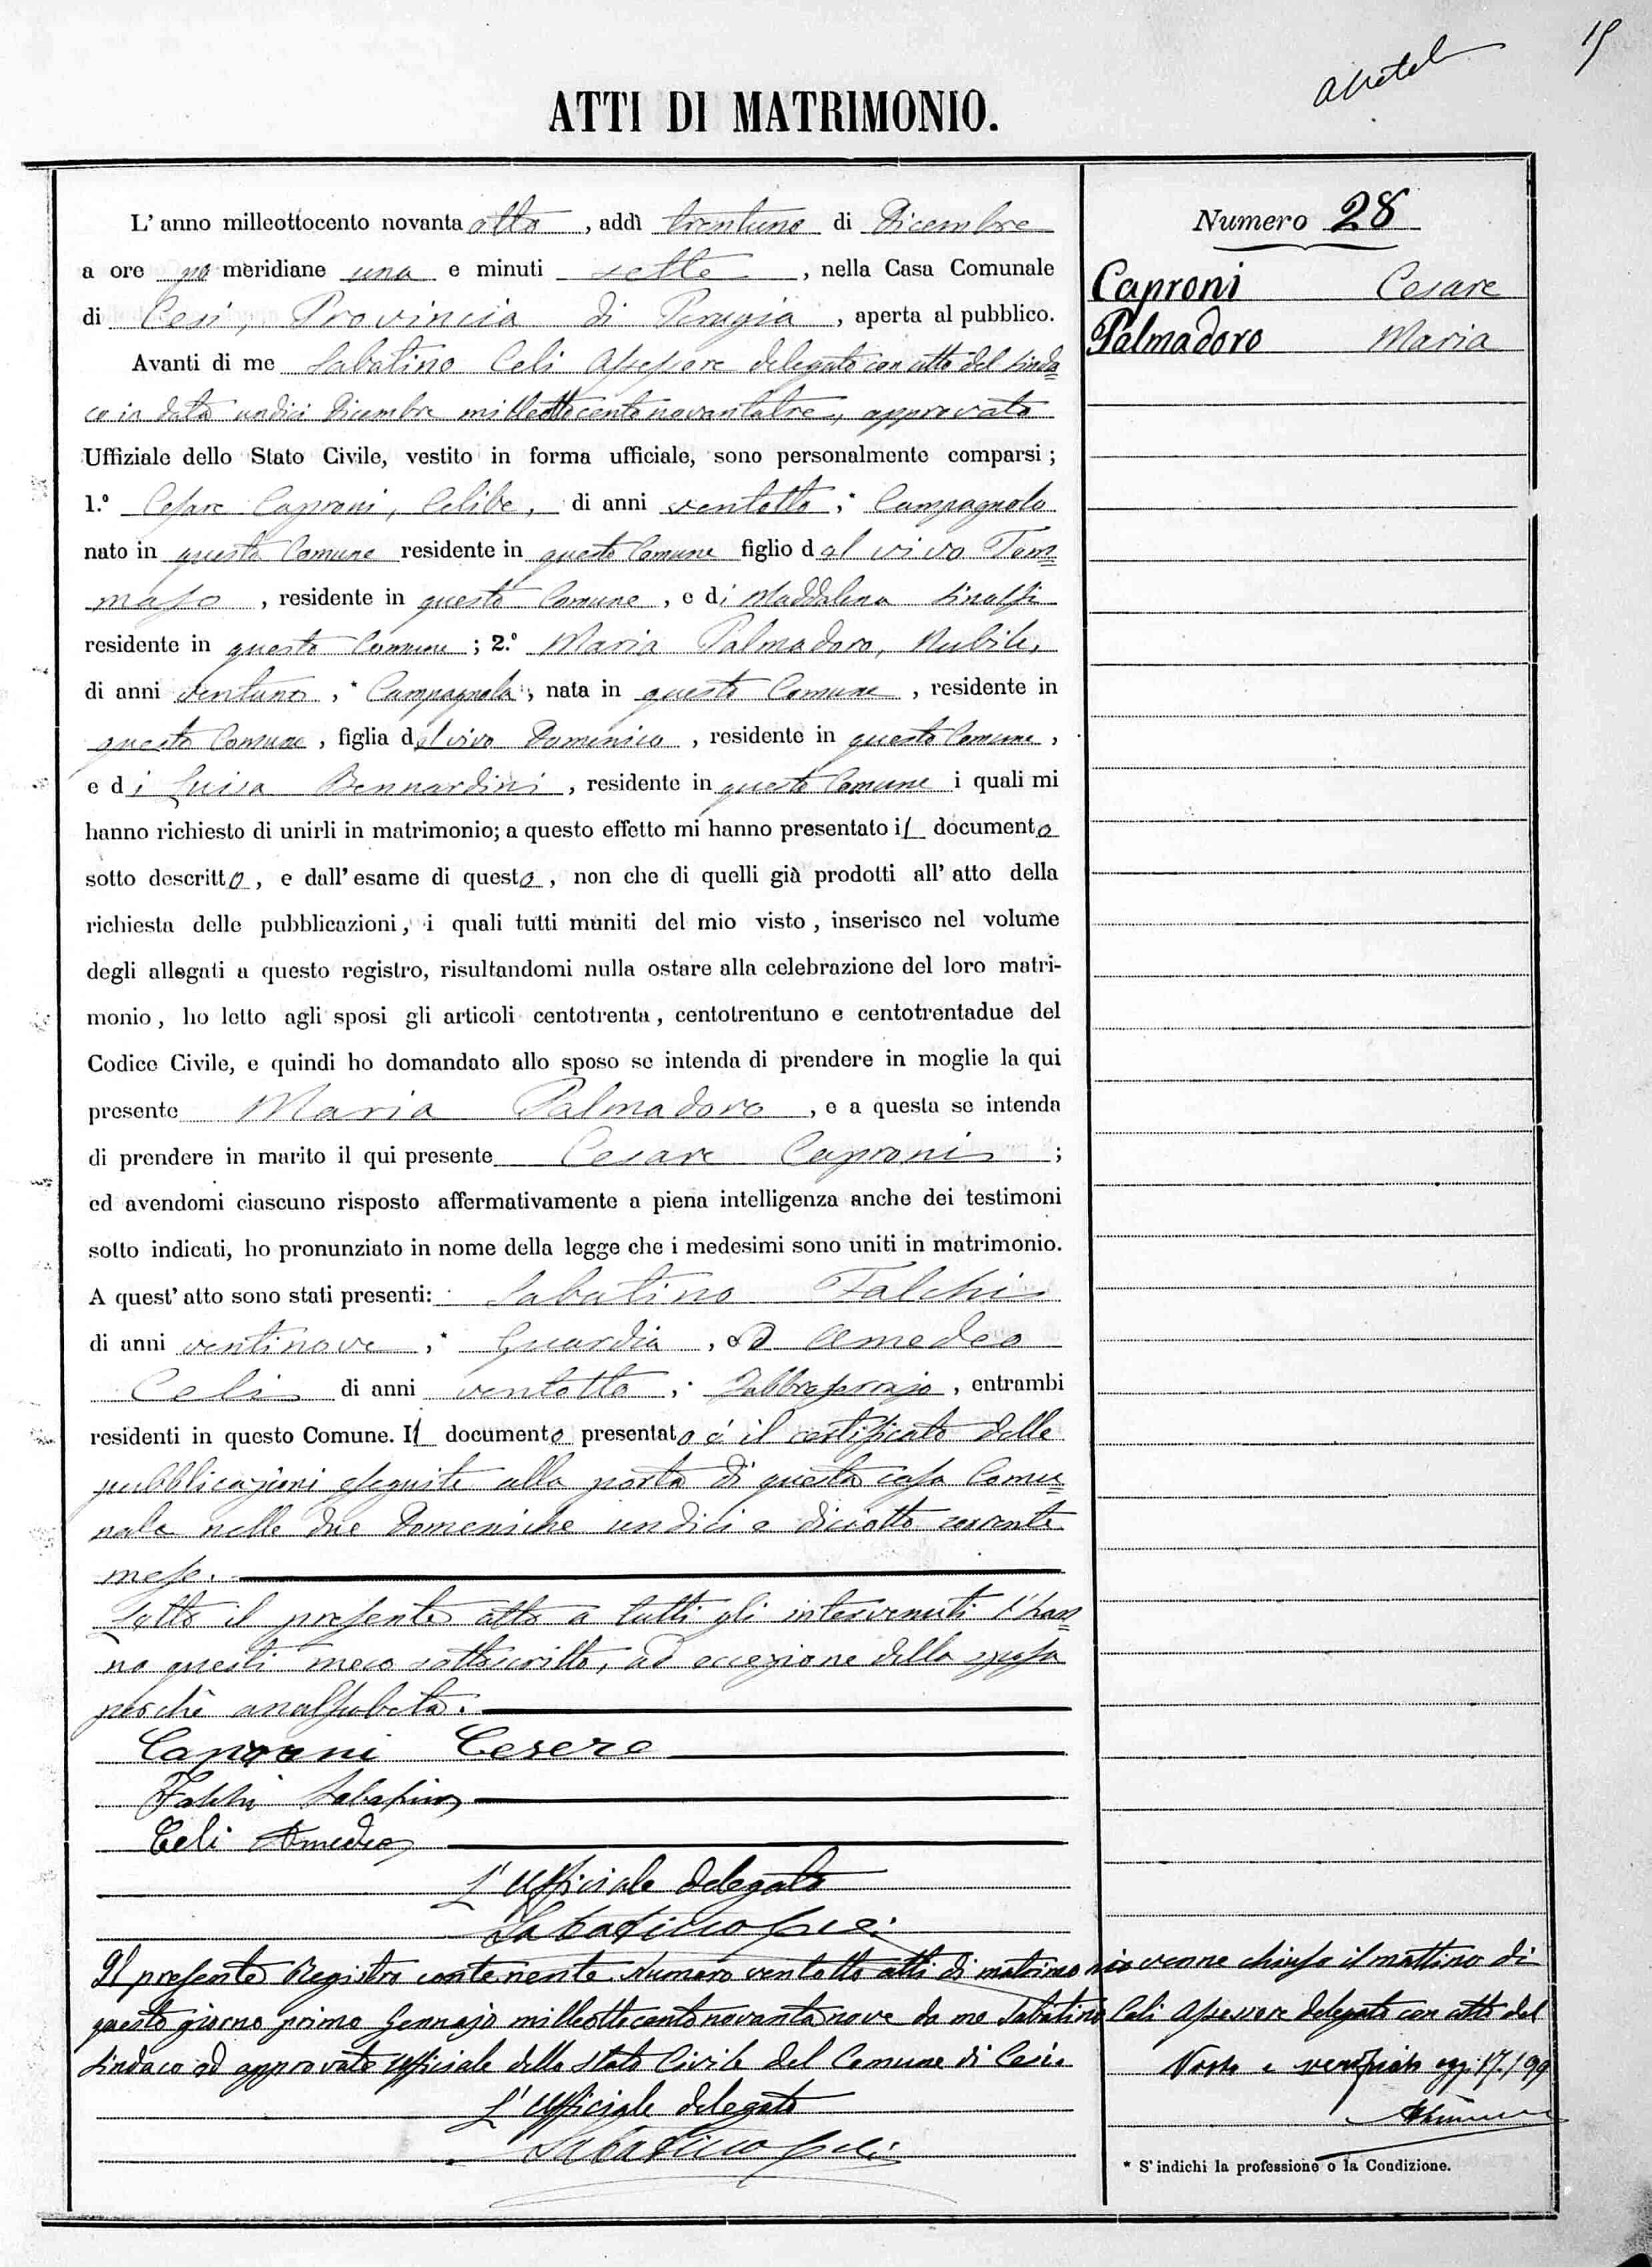 15
ATTI DI MATRIMONIO.
Numero 28
Caproni Cesare
Palmadoro Maria
L' anno milleottocento novanta otto, addì trentuno di Dicembre
a ore po meridiane una e minuti sette, nella Casa Comunale
di Cesi, Provincia di Perugia, aperta al pubblico.
Avanti di me Sabatino Celi Assessore delegato con atto del Sinda=
co in data undici Dicembre milleottocentonovantatre, approvato
Uffiziale dello Stato Civile, vestito in forma ufficiale, sono personalmente comparsi;
1.° Cesare Caproni, Celibe, di anni ventotto, * Campagnolo
nato in questo Comune residente in questo Comune figlio dal vivo Tom=
maso, residente in questo Comune, e di Maddalena
residente in questo Comune; 2.° Maria Palmadoro, Nubile,
di anni ventuno, * Campagnola, nata in questo Comune, residente in
questo Comune, figlia dal vivo Domenico, residente in questo Comune,
e di Luisa Bennardini, residente in questo Comune i quali mi
hanno richiesto di unirli in matrimonio; a questo effetto mi hanno presentato il documento
sotto descritto, e dall' esame di questo, non che di quelli già prodotti all' atto della
richiesta delle pubblicazioni, i quali tutti muniti del mio visto, inserisco nel volume
degli allegati a questo registro, risultandomi nulla ostare alla celebrazione del loro matri-
monio, ho letto agli sposi gli articoli centotrenta, centotrentuno e centotrentadue del
Codice Civile, e quindi ho domandato allo sposo se intenda di prendere in moglie la qui
presente Maria Palmadoro, e a questa se intenda
di prendere in marito il qui presente Cesare Caproni;
ed avendomi ciascuno risposto affermativamente a piena intelligenza anche dei testimoni
sotto indicati, ho pronunziato in nome della legge che i medesimi sono uniti in matrimonio.
A quest' atto sono stati presenti: Sabatino Falchi
di anni ventinove, * Guardia, ed Amedeo
Celi di anni ventotto, * Fabbroferrajo, entrambi
residenti in questo Comune. Il documento presentato é il certificato delle
pubblicazioni eseguite alla porta di questa casa Comu=
nale nelle due Domeniche undici e diciotto corrente
mese.
Letto il presente atto a tutti gli intervenuti l'han=
no questi meco sottoscritto, ad eccezione della sposa
perchè analfabeta.
Caproni Cesere
Falchi Sabatino
Celi Amedeo
L'Ufficiale delegato
Sabatino Celi
Il presente Registro contenente Numero ventotto atti di matrimonio venne chiuso il mattino di
questo giorno primo Gennajo milleottocentonovantanove da me Sabatino Celi Assessore delegato con atto del
Sindaco ed approvato Ufficiale dello Stato Civile del Comune di Cesi.
Visto e verificato oggi 17. /99
L'Ufficiale delegato
Sabatino Celi
* S'indichi la professione o la Condizione.